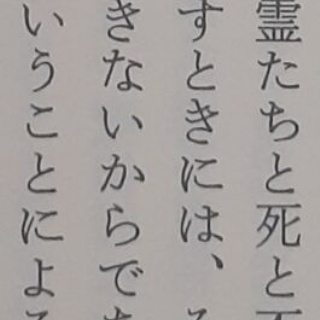 霊たちと死と
すときには、
きないからで
いうことによ